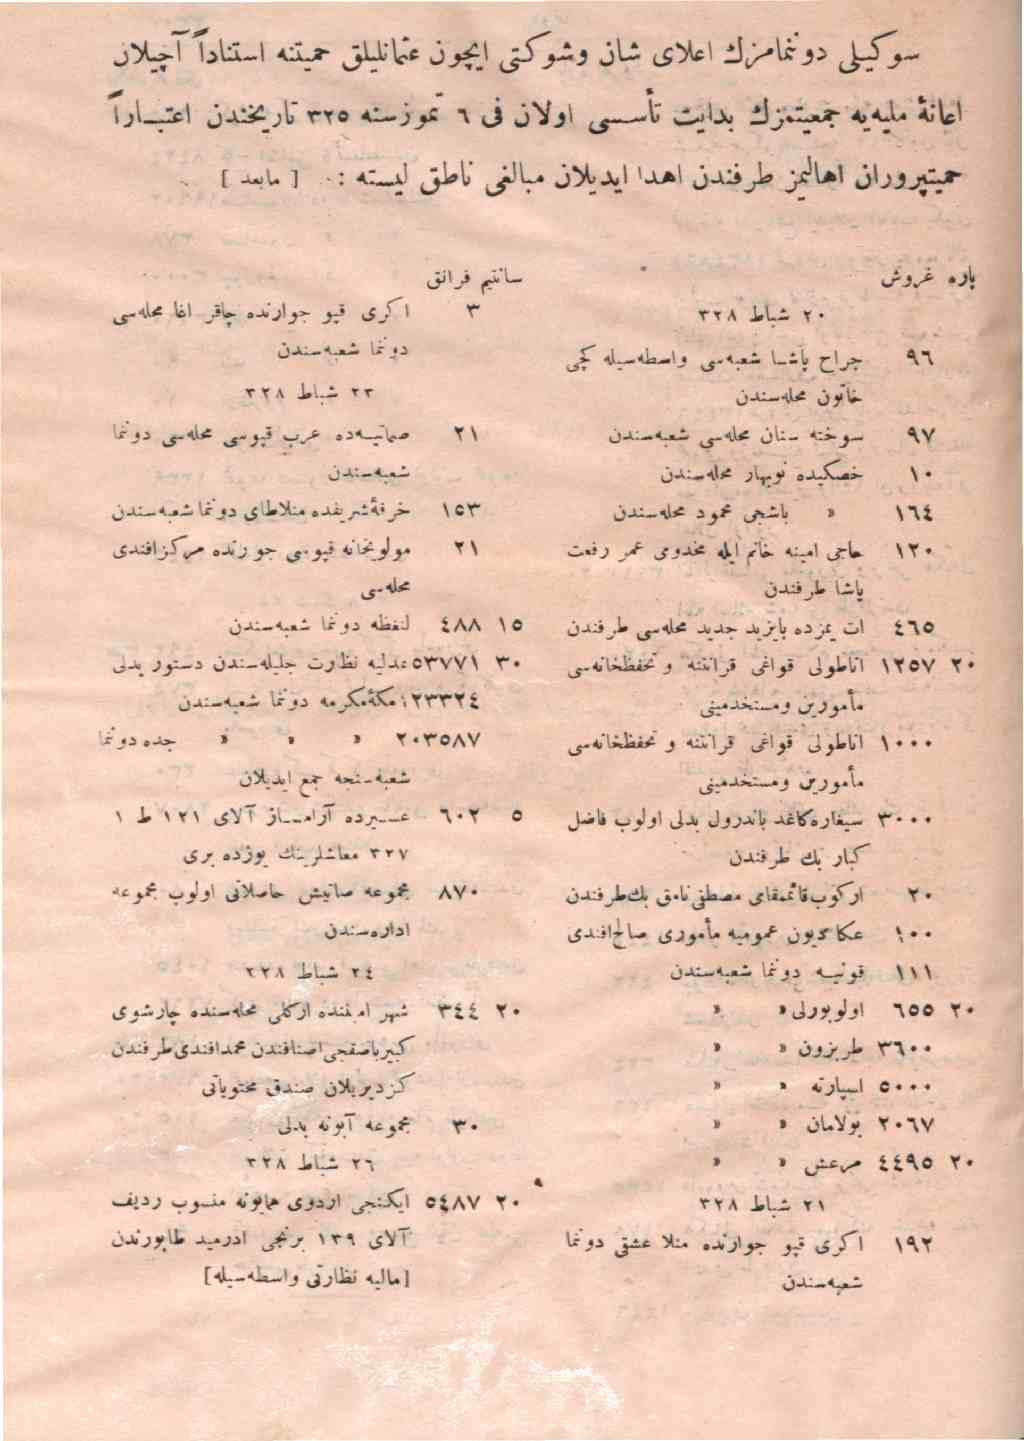 سوكیلی دوننمامزك اعلای شان وشوكتی ایچون عثمانلیلق حمیتنه استناداً آچیلان
اعانۀ ملیه‌یه جمعیتمزك بدایت تأسسی اولان فی ٦ تموز سنه ٣٢٥ تاریخندن اعتباراً
حمیتپروران اهالیمز طرفندن اهدا ایدیلان مبالغی ناطق لیسته : [ مابعد ]
پاره غروش
٢٠ شباط ٣٢٨
٩٦ جراح پاشا شعبه‌سی واسطه‌سیله كچی
خاتون محله‌سندن
٩٧ سوخته سنان محله‌سی شعبه‌سندن
١٠ خصكیده نوبهار محله‌سندن
١٦٤ » باشجی محمود محله‌سندن
١٢٠ حاجی امینه خانم ایله مخدومی عمر رفعت
پاشا طرفندن
٤٦٥ ات یمزده بایزید جدید محله‌سی طرفندن
٢٠ ١٢٥٧ اناطولی قواغی قرانتنه و تحفظخانه‌سی
مأمورین ومستخدمینی
١٠٠٠ اناطولی قواغی قرانتنه و تحفظخانه‌سی
مأمورین ومستخدمینی
٣٠٠٠ سیغاره كاغد باندرول بدلی اولوب فاضل
كبار بك طرفندن
٢٠ اركوب قائممقامی مصطفی نامق بك طرفندن
١٠٠ عكا دیون عمومیه مأموری صالح افندی
١١١ قونیه دوننما شعبه‌سندن
٢٠ ٦٥٥ اولوبورلی » »
٣٦٠٠ طربزون » »
٥٠٠٠ اسپارته » »
٢٠٦٧ بولامان » »
٢٠ ٤٤٩٥ مرعش » »
٢١ شباط ٣٢٨
١٩٢ اكری قپو جوارنده منلا عشقی دوننما
شعبه‌سندن
سانتیم فرانق
٣ اكری قپو جوارنده چاقر اغا محله‌سی
دوننما شعبه‌سندن
٢٣ شباط ٣٢٨
٢١ صماتیه‌ده عرب قپوسی محله‌سی دوننما
شعبه‌سندن
١٥٣ خرقۀ شریفده منلاطای دوننما شعبه‌سندن
٢١ مولویخانه قپوسی جوارنده مركز افندی
محله‌سی
١٥ ٤٨٨ لنغظه دوننما شعبه‌سندن
٣٠ ٥٣٧٧١ عدلیه نظارت جلیله‌سندن دستور بدلی
١٢٣٣٢٤ مكۀ مكرمه دوننما شعبه‌سندن
٢٠٣٥٨٧ » » » جده دوننما
شعبه‌سنجه جمع ایدیلان
٥ ٦٠٢ عسیرده آرامساز آلای ١٢١ ط ١
٣٢٧ معاشلرینك یوزده بری
٨٧٠ مجموعه صاتیش حاصلاتی اولوب مجموعه
اداره‌سندن
٢٤ شباط ٣٢٨
٢٠ ٣٤٤ شهر امینینده اركلی محله‌سنده چارشوی
كبیر باصقجی اصنافندن محمد افندی طرفندن
كزدیریلان صندق محتویاتی
٣٠ مجموعه آبونه بدلی
٢٦ شباط ٣٢٨
٢٠ ٥٤٨٧ ایكنجی اردوی همایونه منسوب ردیف
آلای ١٣٩ برنجی ادرمید طابورندن
[مالیه نظارتی واسطه‌سیله]